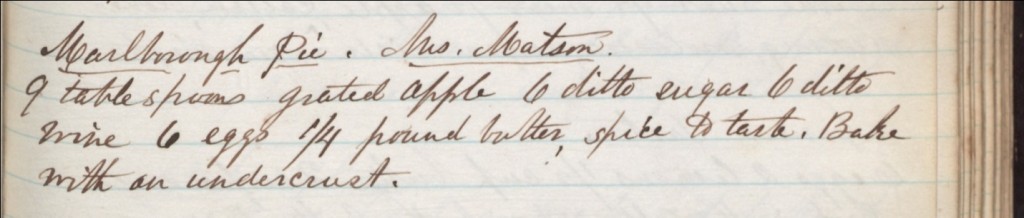 Marlborough Pie. Mrs. Matson.
9 tablespoons grated apple 6 ditto sugar 6 ditto
wine 6 eggs 1/4 pound butter, spice to taste. Bake
with an undercrust.